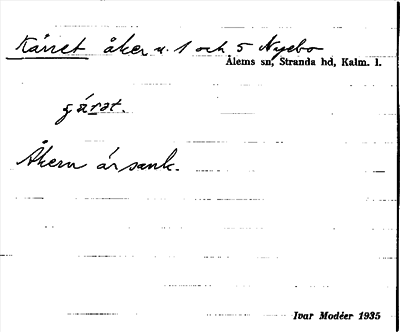 Kärret åker n. 1 och 5 Nyebo
Ålems sn, Stranda hd, Kalm. l.
Åkern är sank.
Ivar Modéer 1935